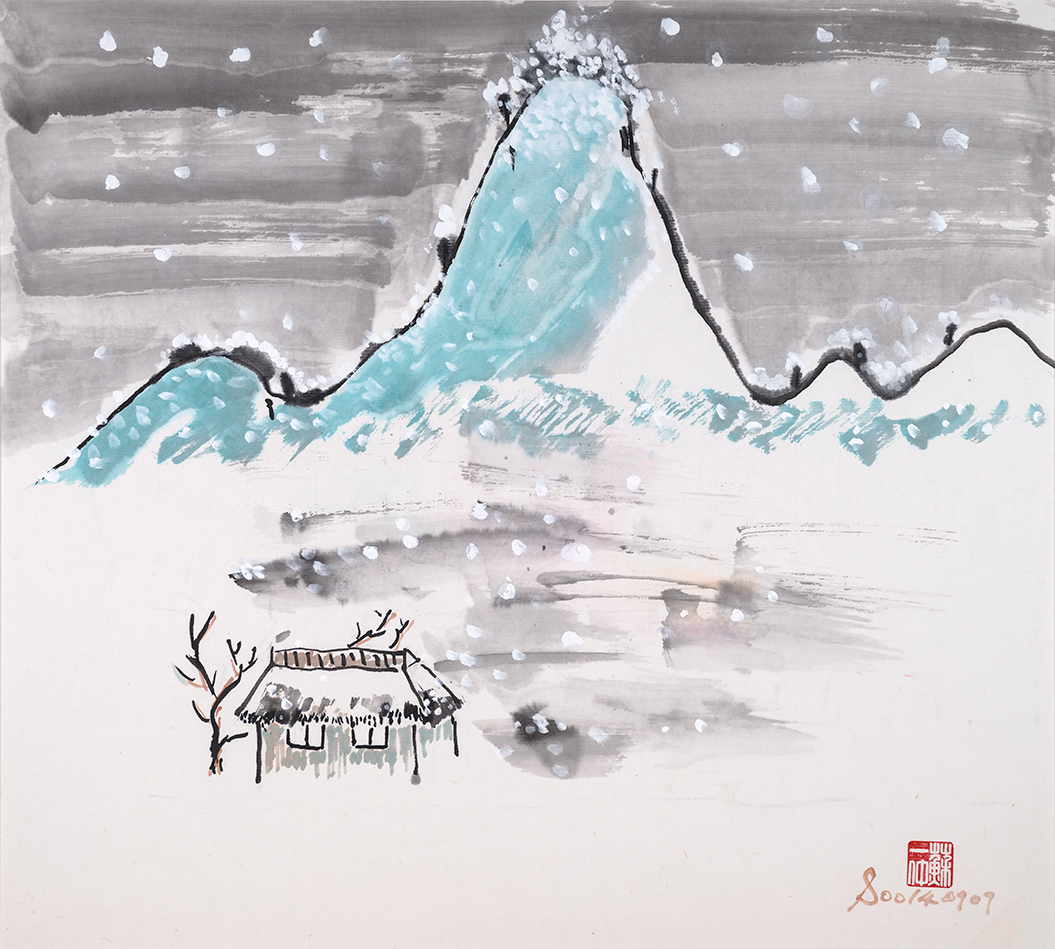 蘇一仲
Soo140909